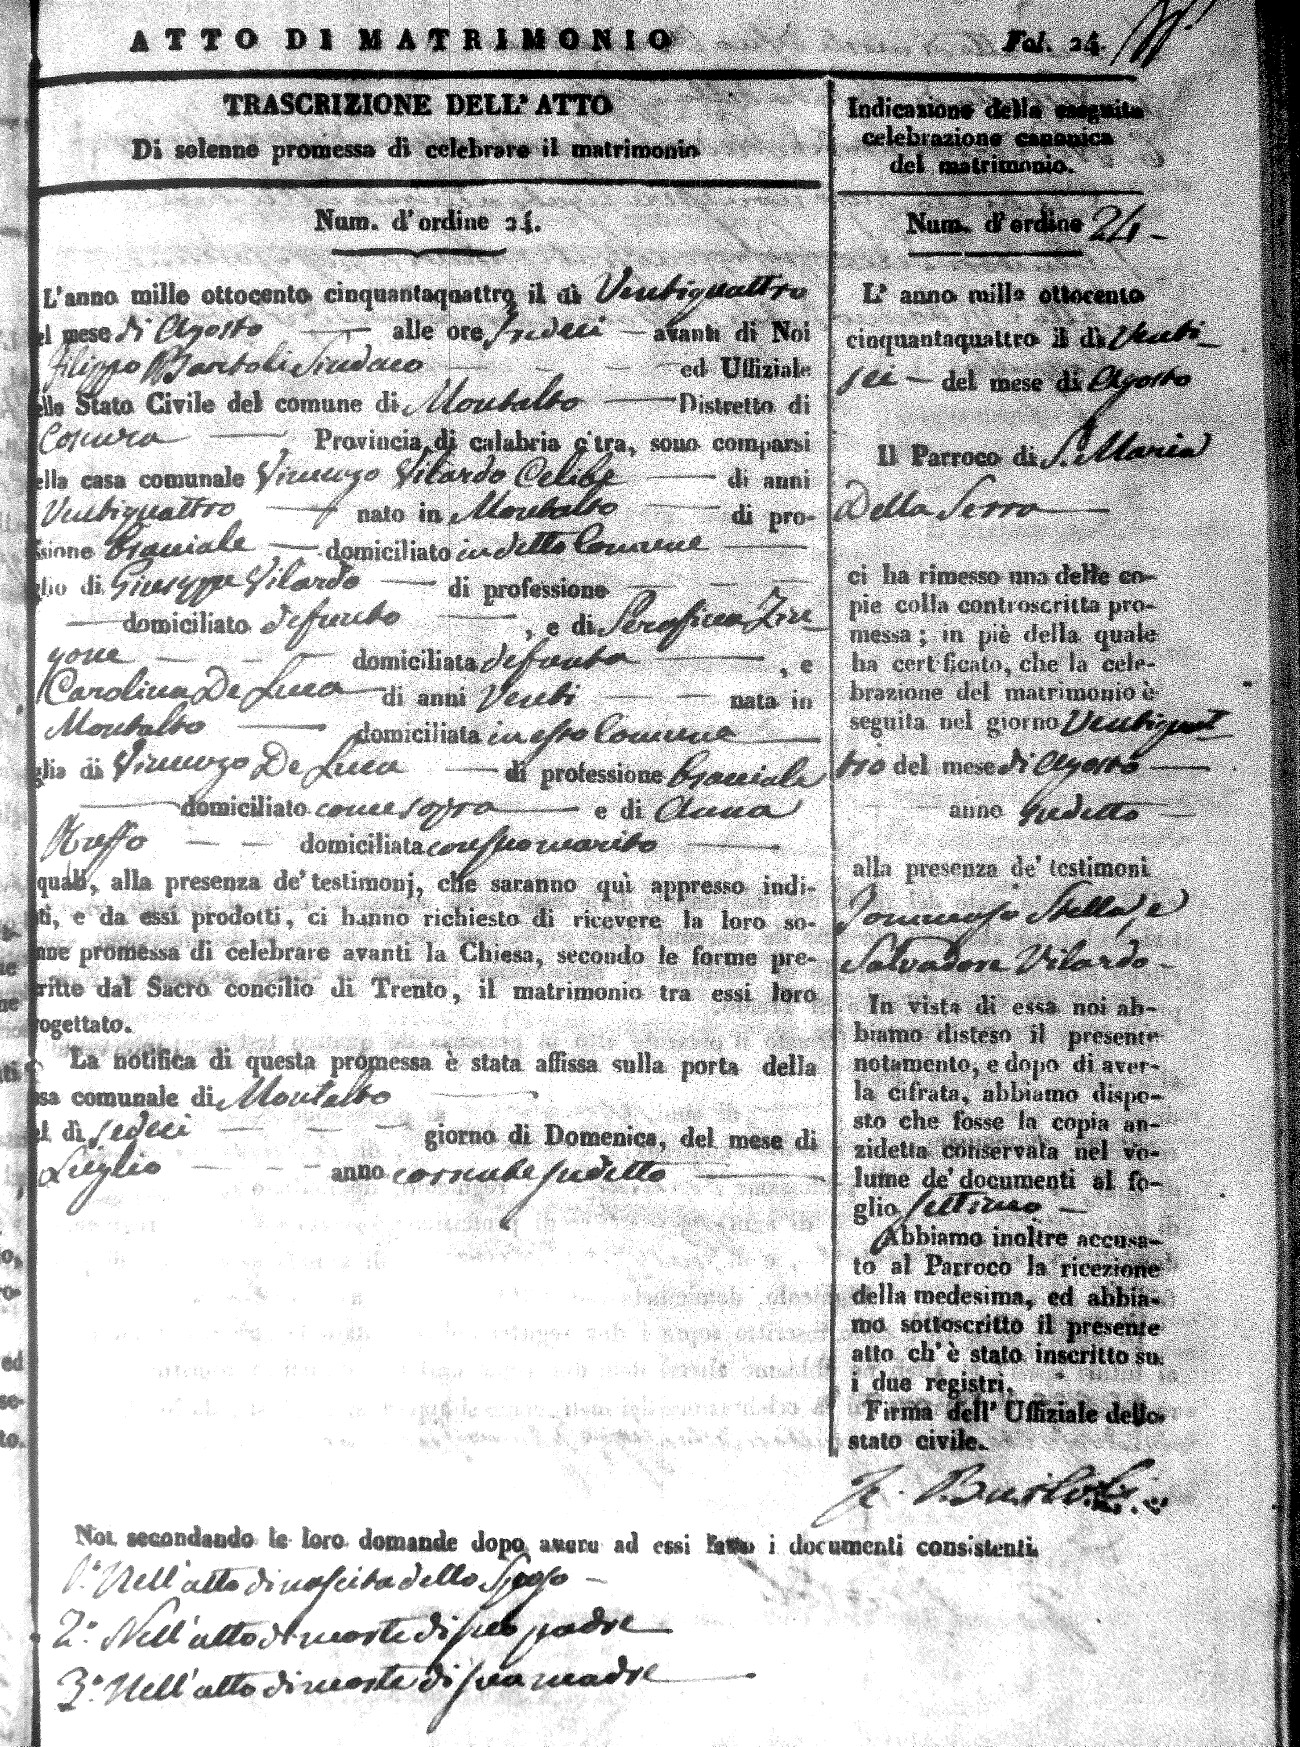 ATTO DI MATRIMONIO
Fol. 24.
TRASCRIZIONE DELL' ATTO
Di solenne promessa di celebrare il matrimonio
Num. d'ordine 24.
L'anno mille ottocento cinquantaquattro il dì Ventiquattro
el mese di Agosto alle ore sedeci avanti di Noi
Filippo Bartoli Sindaco ed Uffiziale
ello Stato Civile del comune di Montalto Distretto di
Cosenza Provincia di calabria citra, sono comparsi
ella casa comunale Vincenzo Vilardo Celibe di anni
Ventiquattro nato in Montalto di pro-
ssione Bracciale domiciliato in detto Comune
glio di Giuseppe Vilardo di professione
domiciliato defunto , e di Serafina Zin
gone domiciliata defunta , e
Carolina De Luca di anni Venti nata in
Montalto domiciliata in esso Comune
glia di Vincenzo De Luca di professione Bracciale
domiciliato come sopra e di Anna
domiciliata con suo marito
quali, alla presenza de' testimonj, che saranno quì appresso indi-
ti, e da essi prodotti, ci hanno richiesto di ricevere la loro so-
nne promessa di celebrare avanti la Chiesa, secondo le forme pre-
ritte dal Sacro concilio di Trento, il matrimonio tra essi loro
rogettato.
La notifica di questa promessa è stata affissa sulla porta della
sa comunale di Montalto
el dì sedeci giorno di Domenica, del mese di
Luglio anno corrente sudetto
Indicazione della eseguita
celebrazione canonica
del matrimonio.
Num. d'ordine 24
L' anno mille ottocento
cinquantaquattro il dì Venti
sei del mese di Agosto
Il Parroco di S. Maria
Della Serra
ci ha rimesso una delle co-
pie colla controscritta pro-
messa; in piè della quale
ha certificato, che la cele-
brazione del matrimonio è
seguita nel giorno Ventiquat
tro del mese di Agosto
anno sudetto
alla presenza de' testimoni
Tommaso Stella, e
Salvadore Vilardo
In vista di essa noi ab-
biamo disteso il presente
notamento, e dopo di aver-
la cifrata, abbiamo dispo-
sto che fosse la copia an-
zidetta conservata nel vo-
lume de' documenti al fo-
glio settimo
Abbiamo inoltre accusa-
to al Parroco la ricezione
della medesima, ed abbia-
mo sottoscritto il presente
atto ch' è stato inscritto su
i due registri.
Firma dell' Uffiziale dello
stato civile.
F. Bartoli
Noi secondando le loro domande dopo avere ad essi letto i documenti consistenti
1.° Nell'atto di nascita dello Sposo
2.° Nell'atto di morte di suo padre
3.° Nell'atto di morte di sua madre